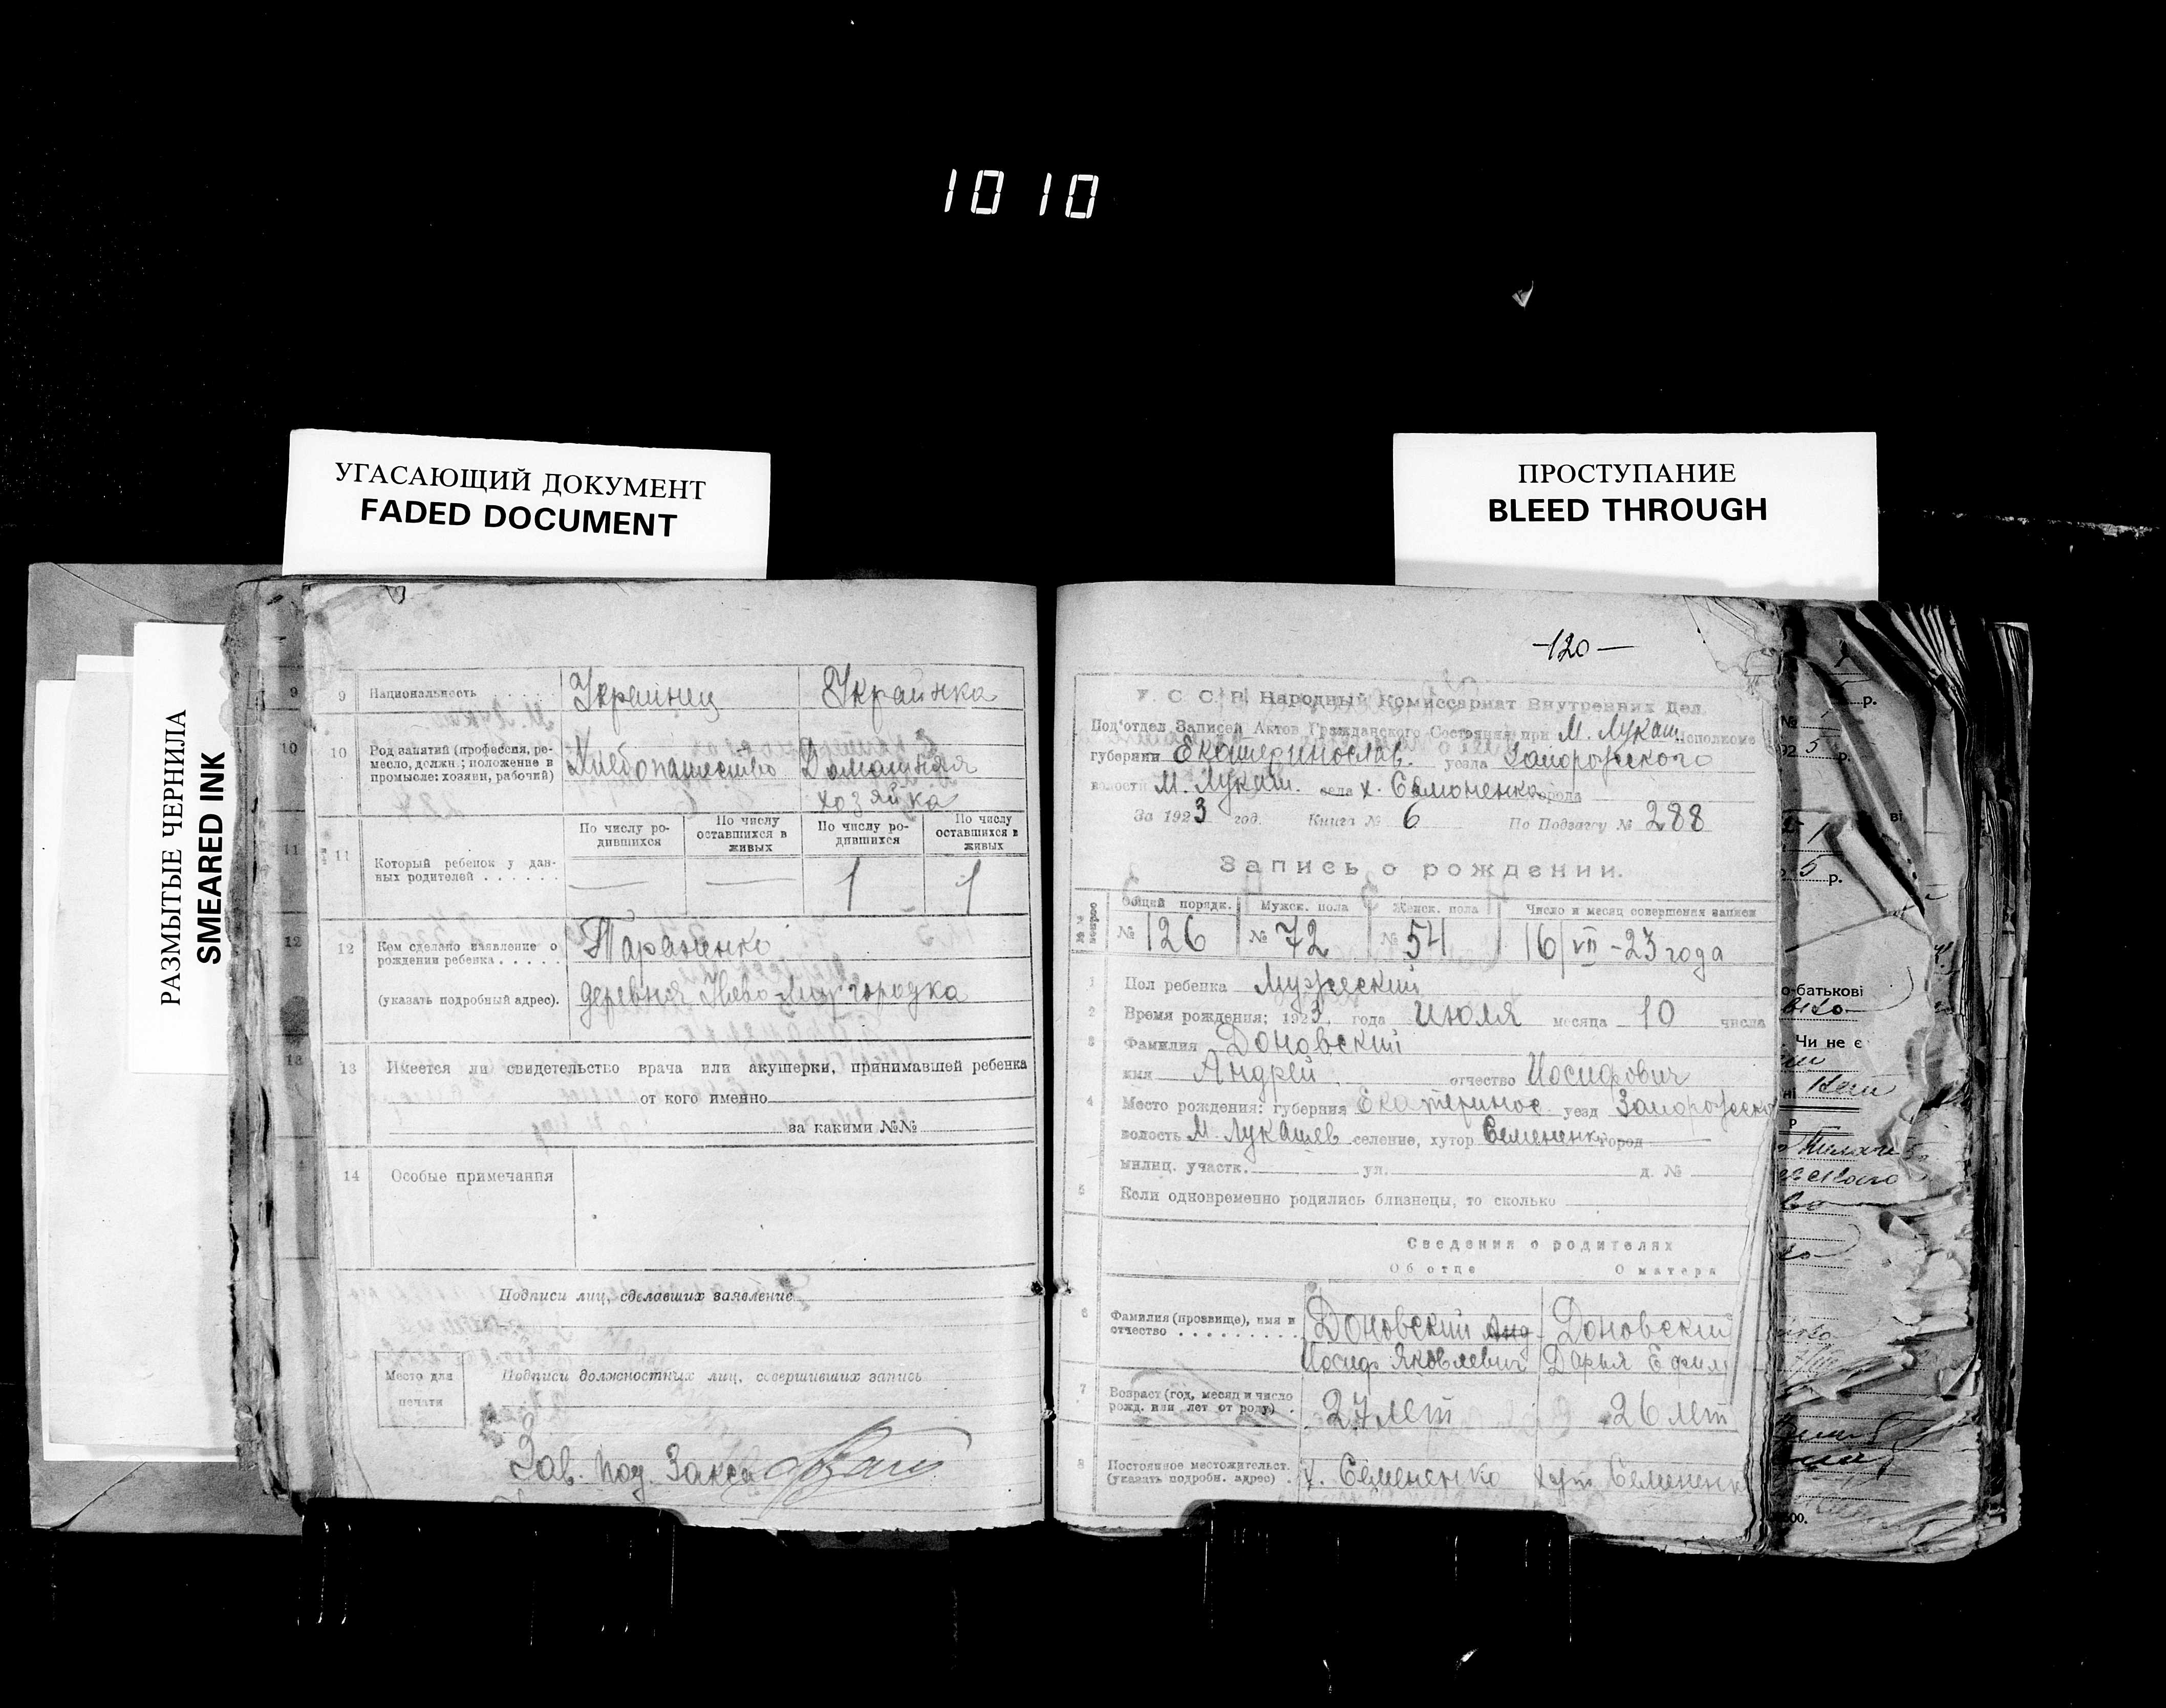 1010
УГАСАЮЩИЙ ДОКУМЕНТ
FADED DOCUMENT
ПРОСТУПАНИЕ
BLEED THROUGH
РАЗМЫТЫЕ ЧЕРНИЛА
SMEARED INK
9 Национальность Украинец Украинка
10 Род занятий (профессия, ремесло, должн.; положение в промысле: хозяин, рабочий) Хлебопашество Домашняя хозяйка
По числу родившихся По числу оставшихся в живых По числу родившихся По числу оставшихся в живых
11 Который ребенок у данных родителей — — 1 1
12 Кем сделано заявление о рождении ребенка Тараненко
(указать подробный адрес). деревня городка
13 Имеется ли свидетельство врача или акушерки, принимавшей ребенка
от кого именно
за какими №№
14 Особые примечания
Подписи лиц, сделавших заявление
Место для печати
Подписи должностных лиц, совершивших запись
Зав. Под. Загса
-120-
У. С. С. Р. Народный Комиссариат Внутренних Дел.
Под'отдел Записей Актов Гражданского Состояния при М. Лукаш. Исполкоме
губернии Екатеринослав. уезда Запорожского
волости М. Лукаш. села х. Семоненко города
За 1923 год. Книга № 6 По Подзагсу № 288
Запись о рождении.
№№ вопрос Общий порядк. Мужск. пола Женск. пола Число и месяц совершения записи
№ 126 № 72 № 54 16/VII-23 года
1 Пол ребенка Мужеский
2 Время рождения: 1923, года Июля месяца 10 числа
3 Фамилия Доновский
имя Андрей отчество Иосифович
4 Место рождения: губерния Екатеринос. уезд Запорожско
волость М. Лукашев селение, хутор Семененко город
милиц. участк. ул. д. №
5 Если одновременно родились близнецы, то сколько
Сведения о родителях
Об отце О матери
6 Фамилия (прозвище), имя и отчество Доновский Анд Доновский
Иосиф Яковлевич Дарья Ефим
7 Возраст (год, месяц и число рожд. или лет от роду) 27 лет 26 лет
8 Постоянное местожительст. (указать подробн. адрес) х. Семененко хут. Семененк